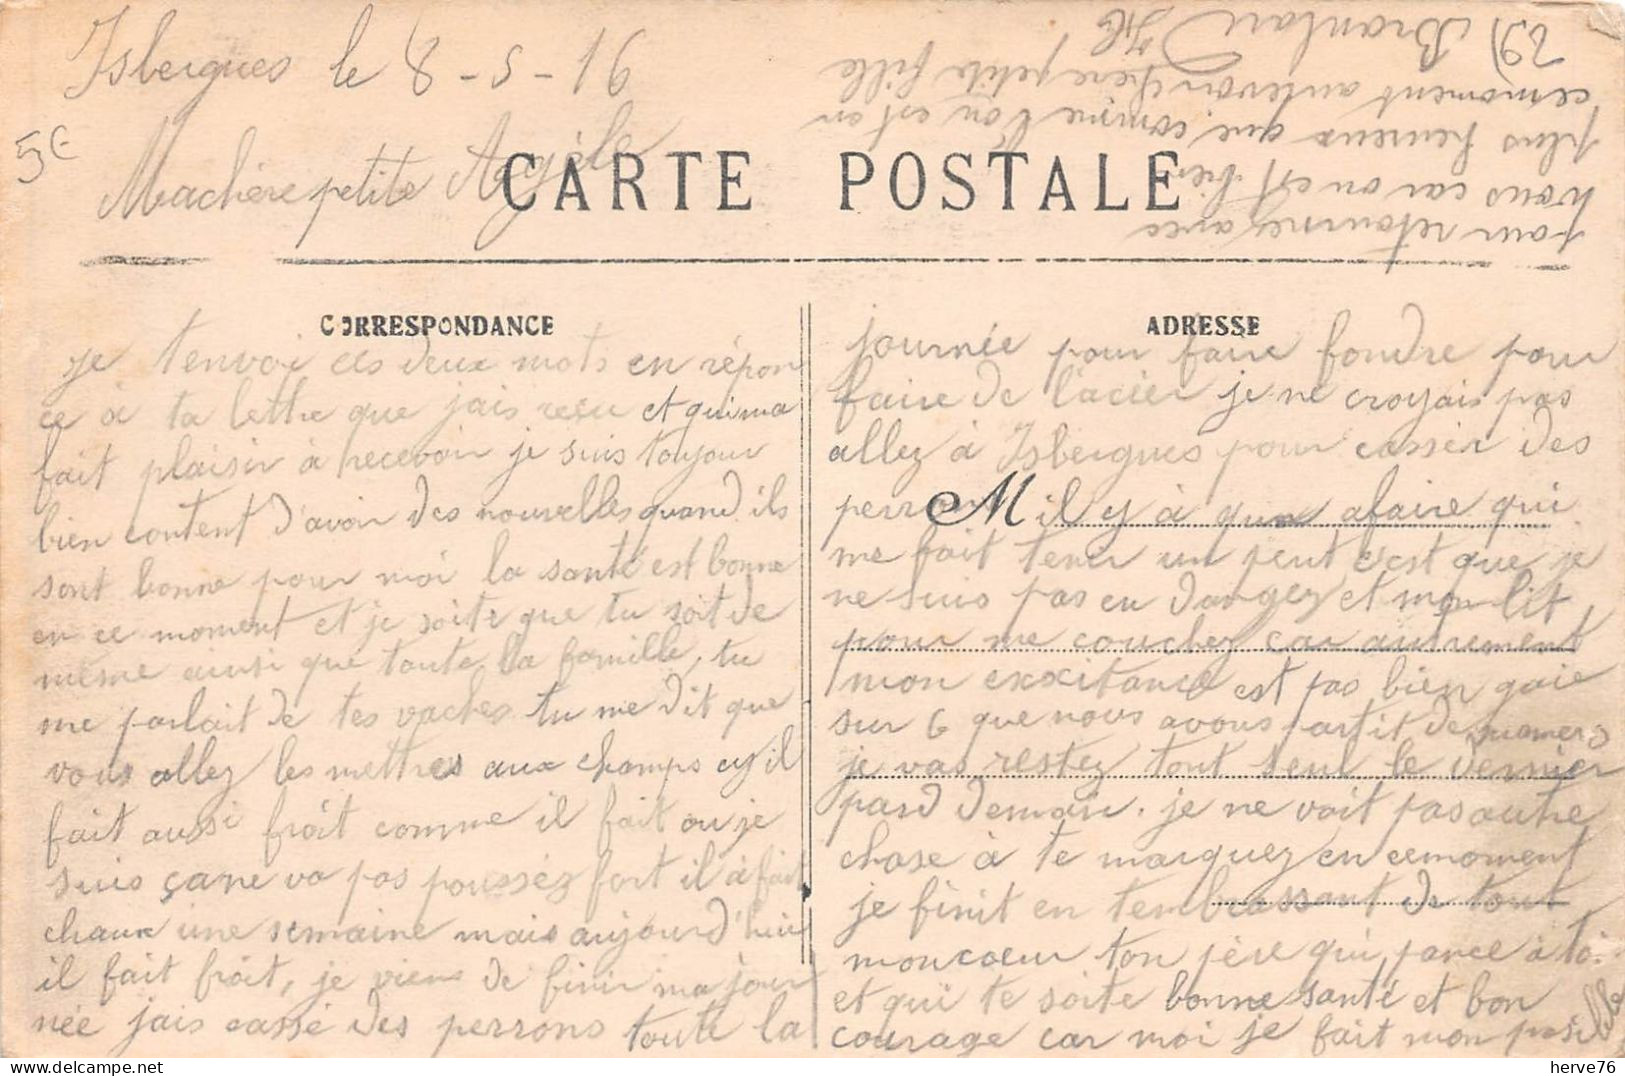 Isbergues le 8-5-16
5€
Machère petite Agèle
CARTE POSTALE
CORRESPONDANCE
je tenvoi ces deux mots en répon
ce a ta lettre que jais reçu et qui ma
fait plaisir à recevoir je suis toujour
bien content d'avoir des nouvelles quand ils
sont bonne pour moi la santé est bonne
en ce moment et je soite que tu soit de
même ainsi que toute la famille, tu
me parlait de tes vaches tu me dit que
vous allez les mettres aux champs il
fait aussi froit comme il fait ou je
suis ça ne va pas poussèz fort il à fait
chaux une semaine mais aujourd'hui
il fait froit, je viens de finir ma jour
née jais cassé des perrons toute la
ADRESSE
journée pour faire fondre pour
faire de l'acier je ne croyais pas
allez à Isbergues pour cassér des
perrons
M
il y à qune afaire qui
me fait tenir un peut c'est que je
ne suis pas en danger et mon lit
pour me couchez car autrement
mon exxitance est pas bien gaie
sur 6 que nous avons partit de mamers
je vas restez tout seul le dernier
pard demain. je ne voit pas autre
chose à te marquez en cemoment
je finit en tembrassant de tout
moncoeur ton père qui pance à toi
et qui te soite bonne santé et bon
courage car moi je fait mon posible
pour retournez avec
vous car on est bien
plus heureux que comme l'on est en
cemoment aurevoir chere petite fille
herve76